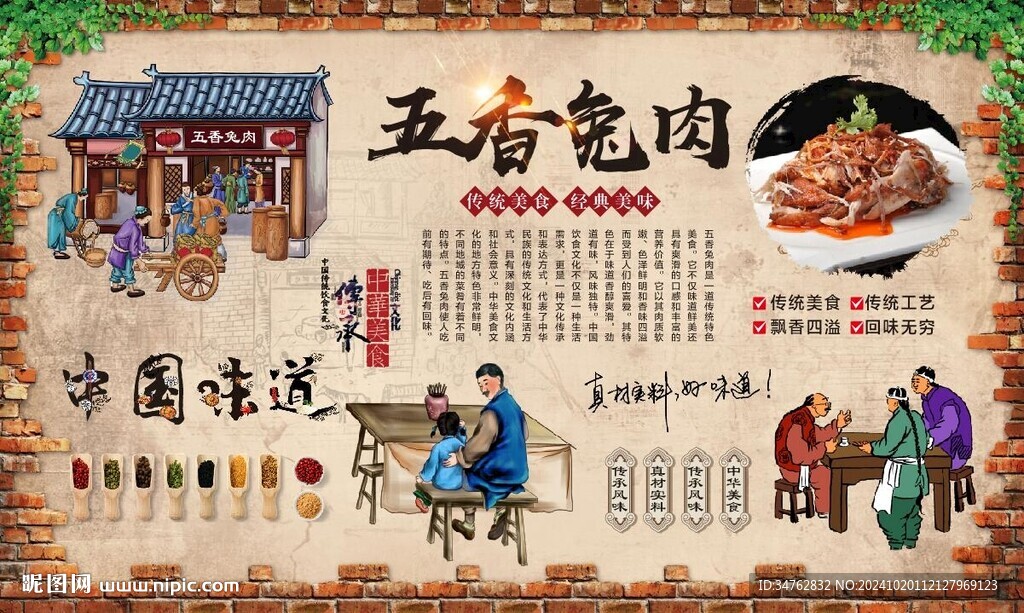 五香兔肉
五香兔肉
传统美食 经典美味
五香兔肉是一道传统特色
美食。它不仅味道鲜美还
具有爽滑的口感和丰富的
营养价值。它以其肉质软
嫩、色泽鲜明和香味四溢
而受到人们的喜爱。其特
色在于味道香醇爽滑,劲
道有味,风味独特。中国
饮食文化不仅是一种生活
需求,更是一种文化传承
和表达方式,代表了中华
民族的传统文化和生活方
式,具有深刻的文化内涵
和社会意义。中华美食文
化的地方特色非常鲜明,
不同地域的菜肴有着不同
的特点。五香兔肉使人吃
前有期待、吃后有回味。
传统美食 传统工艺
飘香四溢 回味无穷
中国传统饮食文化
传承
中華美食
文化
中国味道
真材实料,好味道!
传承风味
真材实料
传承风味
中华美食
昵图网 www.nipic.com
ID:34762832 NO:20241020112127969123